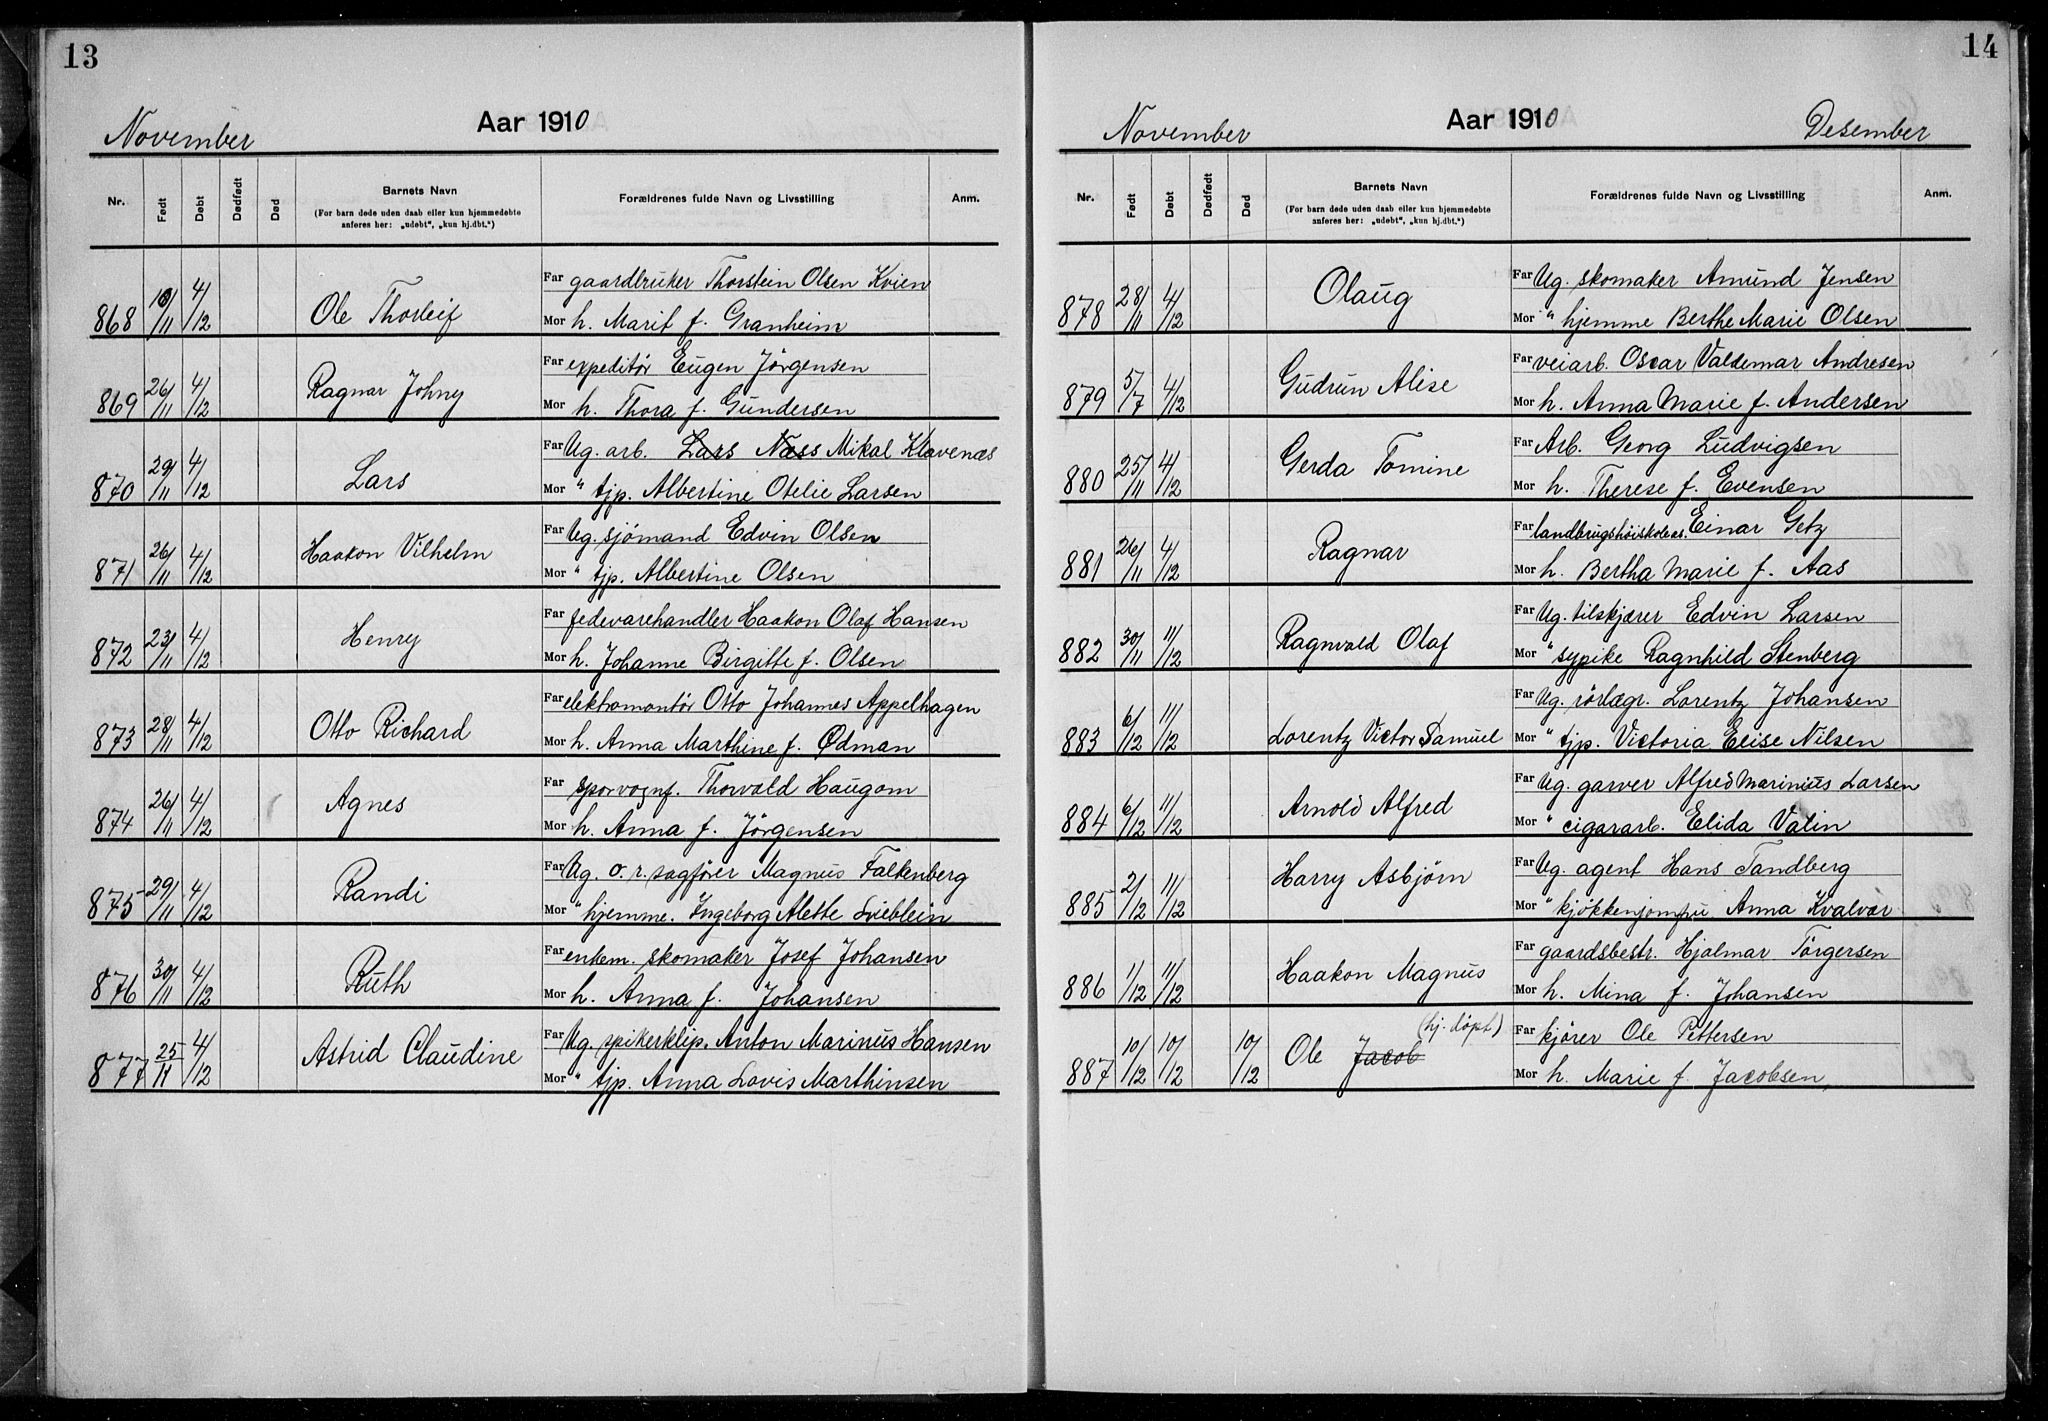 13
November Aar 1910
Nr. Født Døbt Dødfødt Død Barnets Navn Forældrenes fulde Navn og Livsstilling Anm.
(For barn døde uden daab eller kun hjemmedøbte
anføres her: „udøbt“, „kun hj.dbt.“)
868 10/11 4/12 Ole Thorleif Far gaardbruker Thorstein Olsen Kvien
Mor h. Marit f. Granheim
869 26/11 4/12 Ragnar Johny Far expeditör Eugen Jörgensen
Mor h. Thora f. Gundersen
870 29/11 4/12 Lars Far Ug. arb. Lars Næss Mikal Klavenæs
Mor " tjp. Albertine Otelie Larsen
871 26/11 4/12 Haakon Vilhelm Far Ug. sjömand Edvin Olsen
Mor " tjp. Albertine Olsen
872 23/11 4/12 Henry Far fedevarehandler Haakon Olaf Hansen
Mor h. Johanne Birgitte f. Olsen
873 28/11 4/12 Otto Richard Far elektromontör Otto Johannes Appelhagen
Mor h. Anna Marthine f. Ødman
874 26/11 4/12 Agnes Far sporvognf. Thorvald Haugom
Mor h. Anna f. Jörgensen
875 29/11 4/12 Randi Far Ug. o. r. sagförer Magnus Falkenberg
Mor " hjemme. Ingeborg Alette Lieblein
876 30/11 4/12 Ruth Far enkem. skomaker Josef Johansen
Mor h. Anna f. Johansen
877 25/11 4/12 Astrid Claudine Far Ug. spikerklip. Anton Marinus Hansen
Mor " tjp. Anna Lovis Marthinsen
14
November Aar 1910 Desember
Nr. Født Døbt Dødfødt Død Barnets Navn Forældrenes fulde Navn og Livsstilling Anm.
(For barn døde uden daab eller kun hjemmedøbte
anføres her: „udøbt“, „kun hj.dbt.“)
878 28/11 4/12 Olaug Far Ug. skomaker Amund Jensen
Mor " hjemme Berthe Marie Olsen
879 5/7 4/12 Gudrun Alise Far veiarb. Oscar Valdemar Andresen
Mor h. Anna Marie f. Andersen
880 25/11 4/12 Gerda Tomine Far Arb. Georg Ludvigsen
Mor h. Therese f. Evensen
881 26/11 4/12 Ragnar Far landbrugshöiskoleas. Einar Getz
Mor h. Bertha Marie f. Aas
882 30/11 11/12 Ragnvald Olaf Far Ug. tilskjærer Edvin Larsen
Mor " sypike Ragnhild Stenberg
883 6/12 11/12 Lorentz Victor Samuel Far Ug. rörlægr. Lorentz Johansen
Mor " tjp. Victoria Elise Nilsen
884 6/12 11/12 Arnold Alfred Far Ug. garver Alfred Marinius Larsen
Mor " cigararb. Elida Valin
885 2/12 11/12 Harry Asbjörn Far Ug. agent Hans Tandberg
Mor " kjökkenjomfru Anna Kvalvær
886 1/12 11/12 Haakon Magnus Far gaardsbestr. Hjalmar Törgersen
Mor h. Mina f. Johansen
887 10/12 10/12 10/12 Ole Jacob (hj. döpt) Far kjörer Ole Pettersen
Mor h. Marie f. Jacobsen